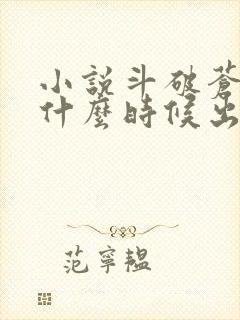 小說斗破蒼
什麼時候出
范寧韞